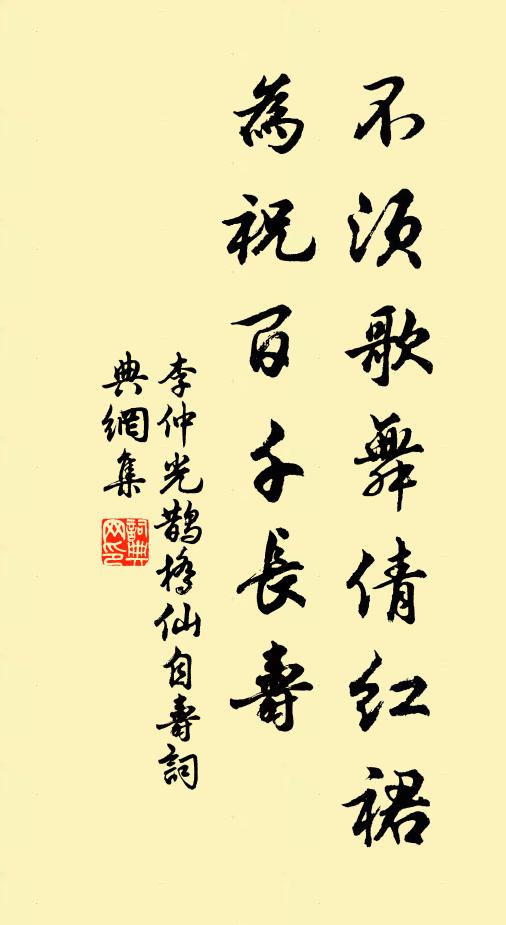 不須歌舞倩紅裙
為祝百千長壽
李仲光鵲橋仙自壽詞
典網集
詞典
网印